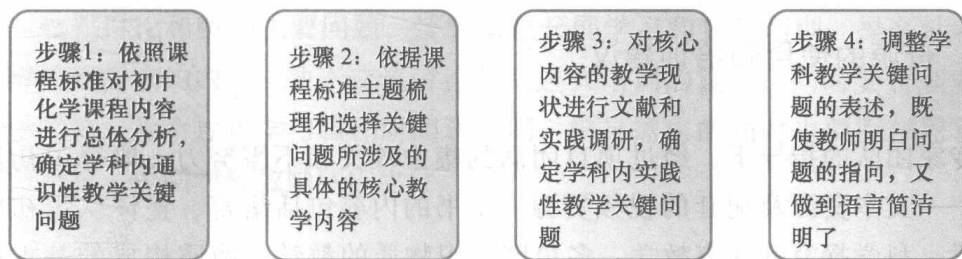 步骤1：依照课
程标准对初中
化学课程内容
进行总体分析，
确定学科内通
识性教学关键
问题
步骤 2：依据课
程标准主题梳
理和选择关键
问题所涉及的
具体的核心教
学内容
步骤 3：对核心
内容的教学现
状进行文献和
实践调研，确
定学科内实践
性教学关键问
题
步骤 4：调整学
科教学关键问
题的表述，既
使教师明白问
题的指向，又
做到语言简洁
明了